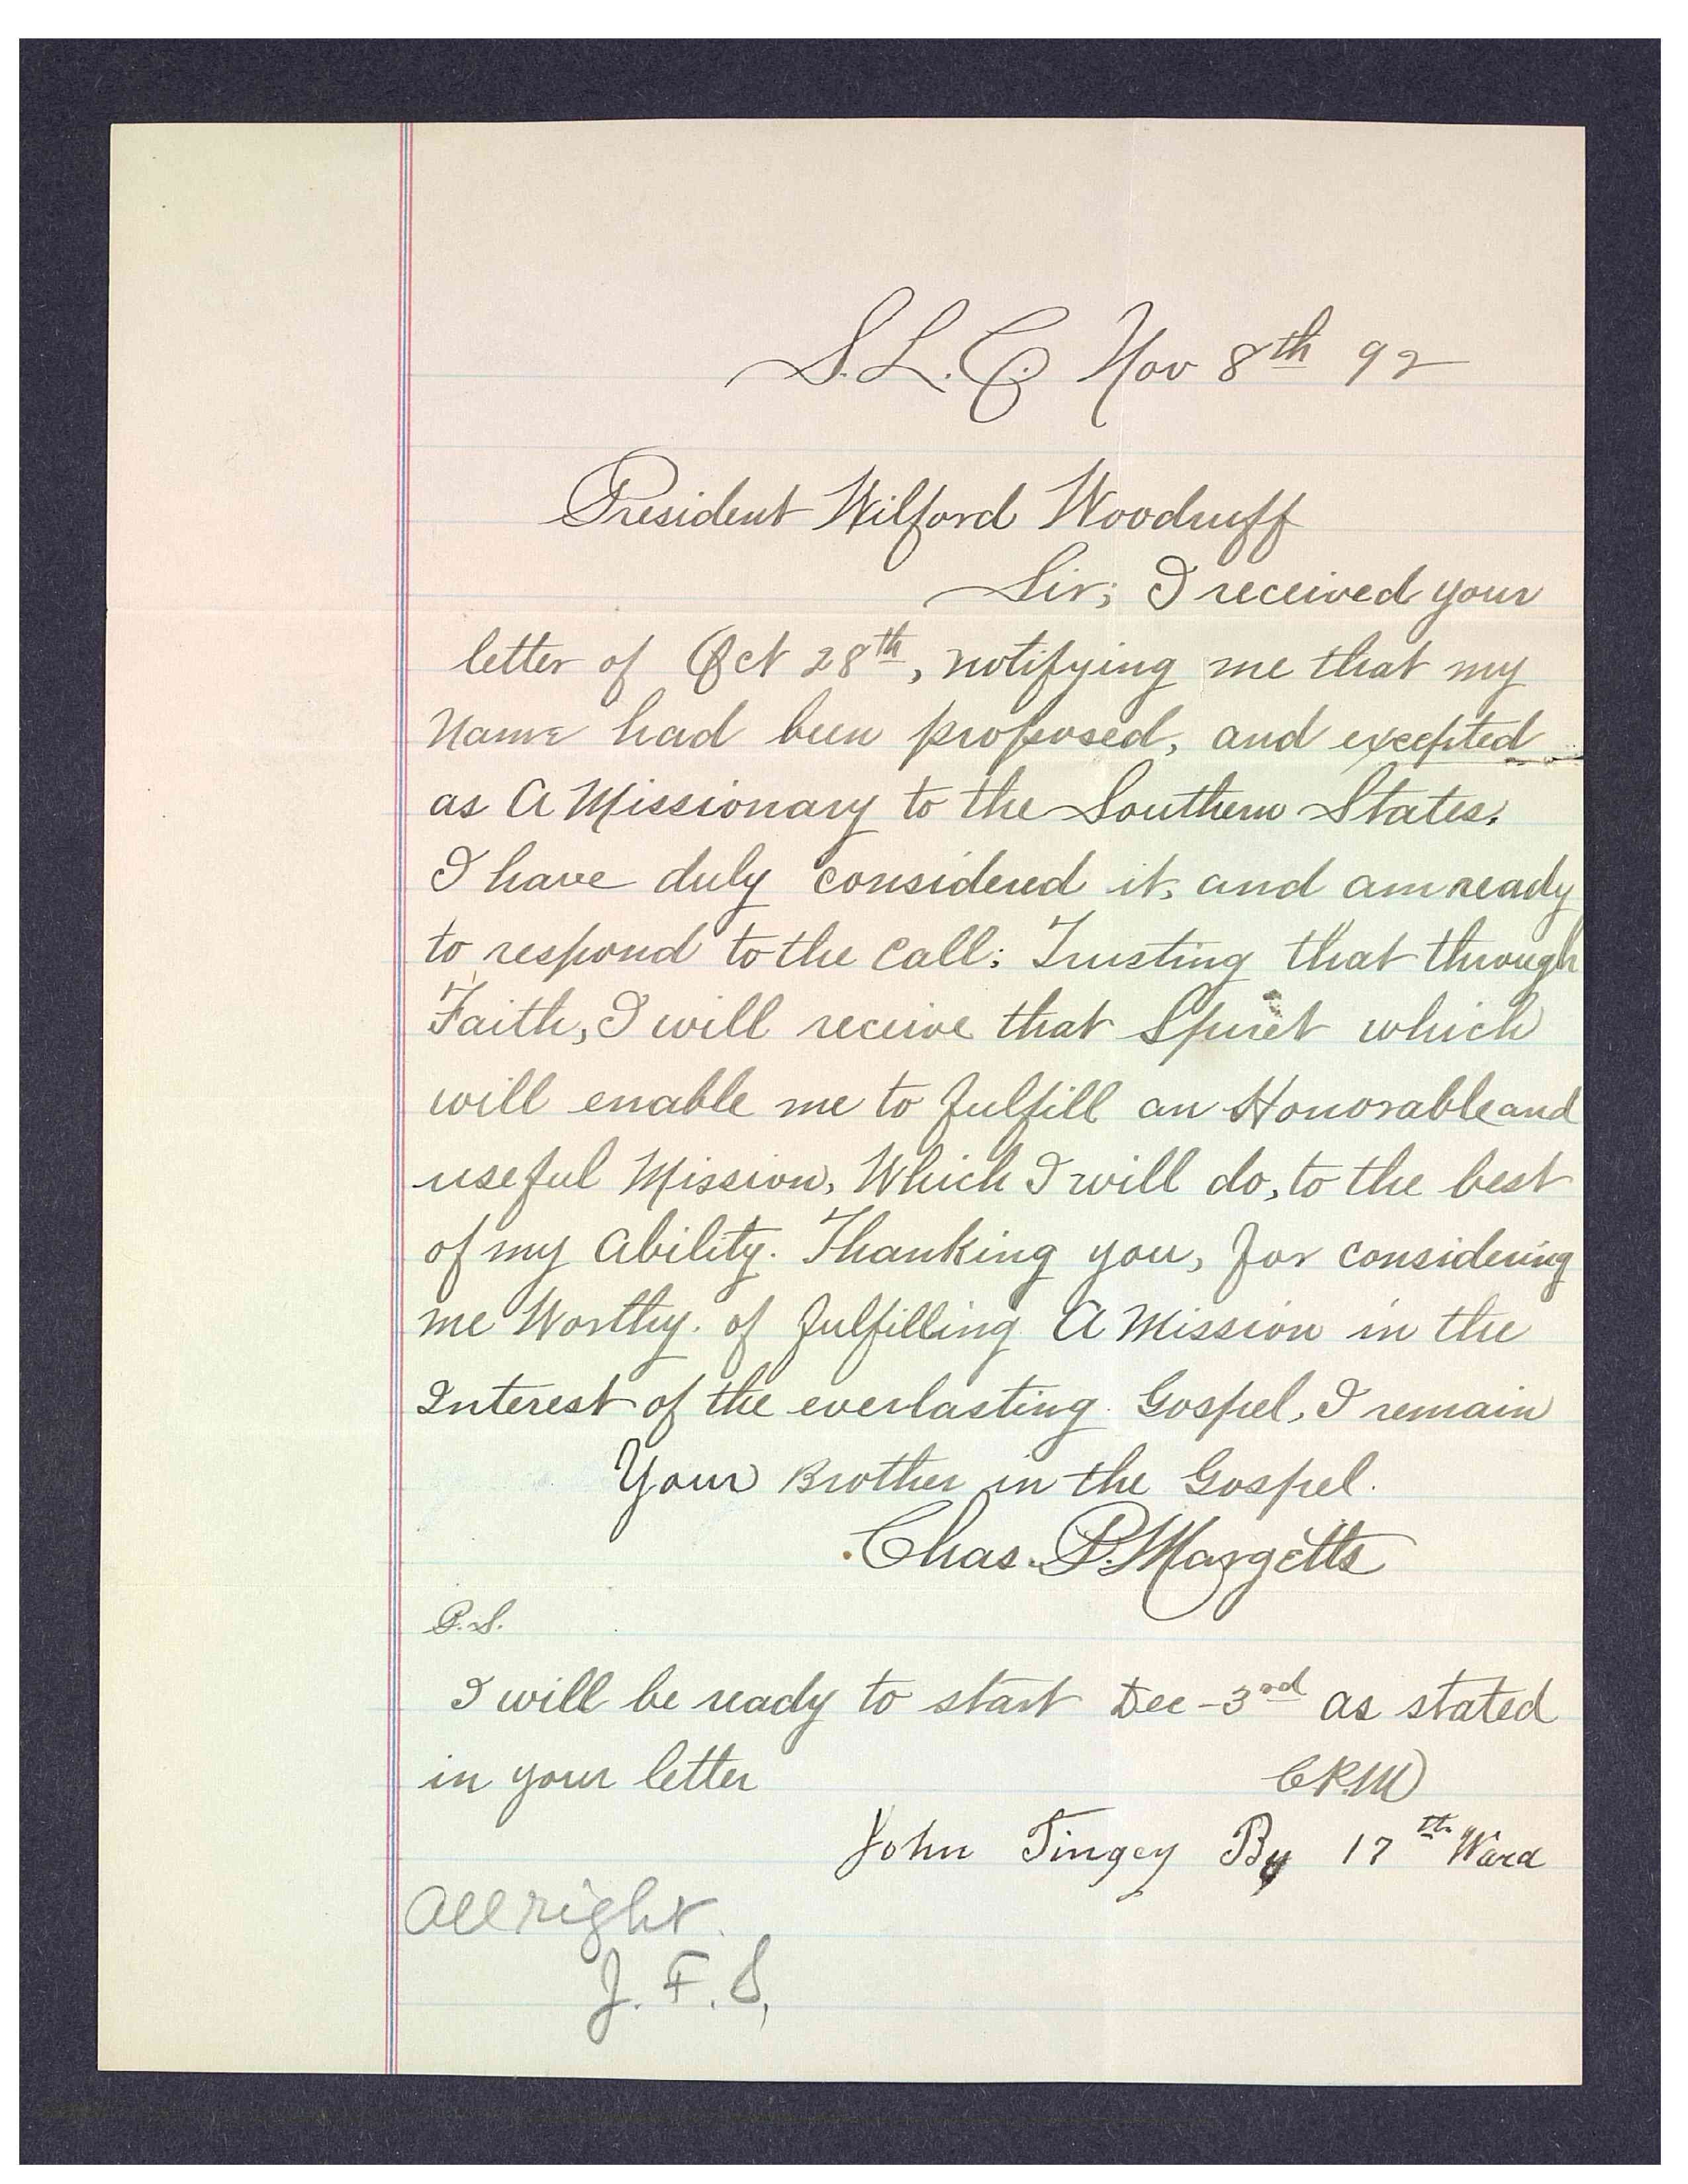 S. L. C. Nov 8th 92
President Wilford Woodruff
Sir; I received your
letter of Oct 28th, notifying me that my
Name had been proposed, and excepted
as A Missionary to the Southern States.
I have duly considered it, and am ready
to respond to the Call; Trusting that through
Faith, I will receive that Spiret which
will enable me to fulfill an Honorable and
useful Mission, Which I will do, to the best
of my Ability. Thanking you, for considering
me Worthy. of fulfilling A Mission in the
Interest of the everlasting Gospel, I remain
Your Brother in the Gospel.
Chas. P. Margetts
P.S.
I will be ready to start Dec - 3rd as stated
in your letter
C.P.M
John Tingey By 17th Ward
All right.
J. F. S,